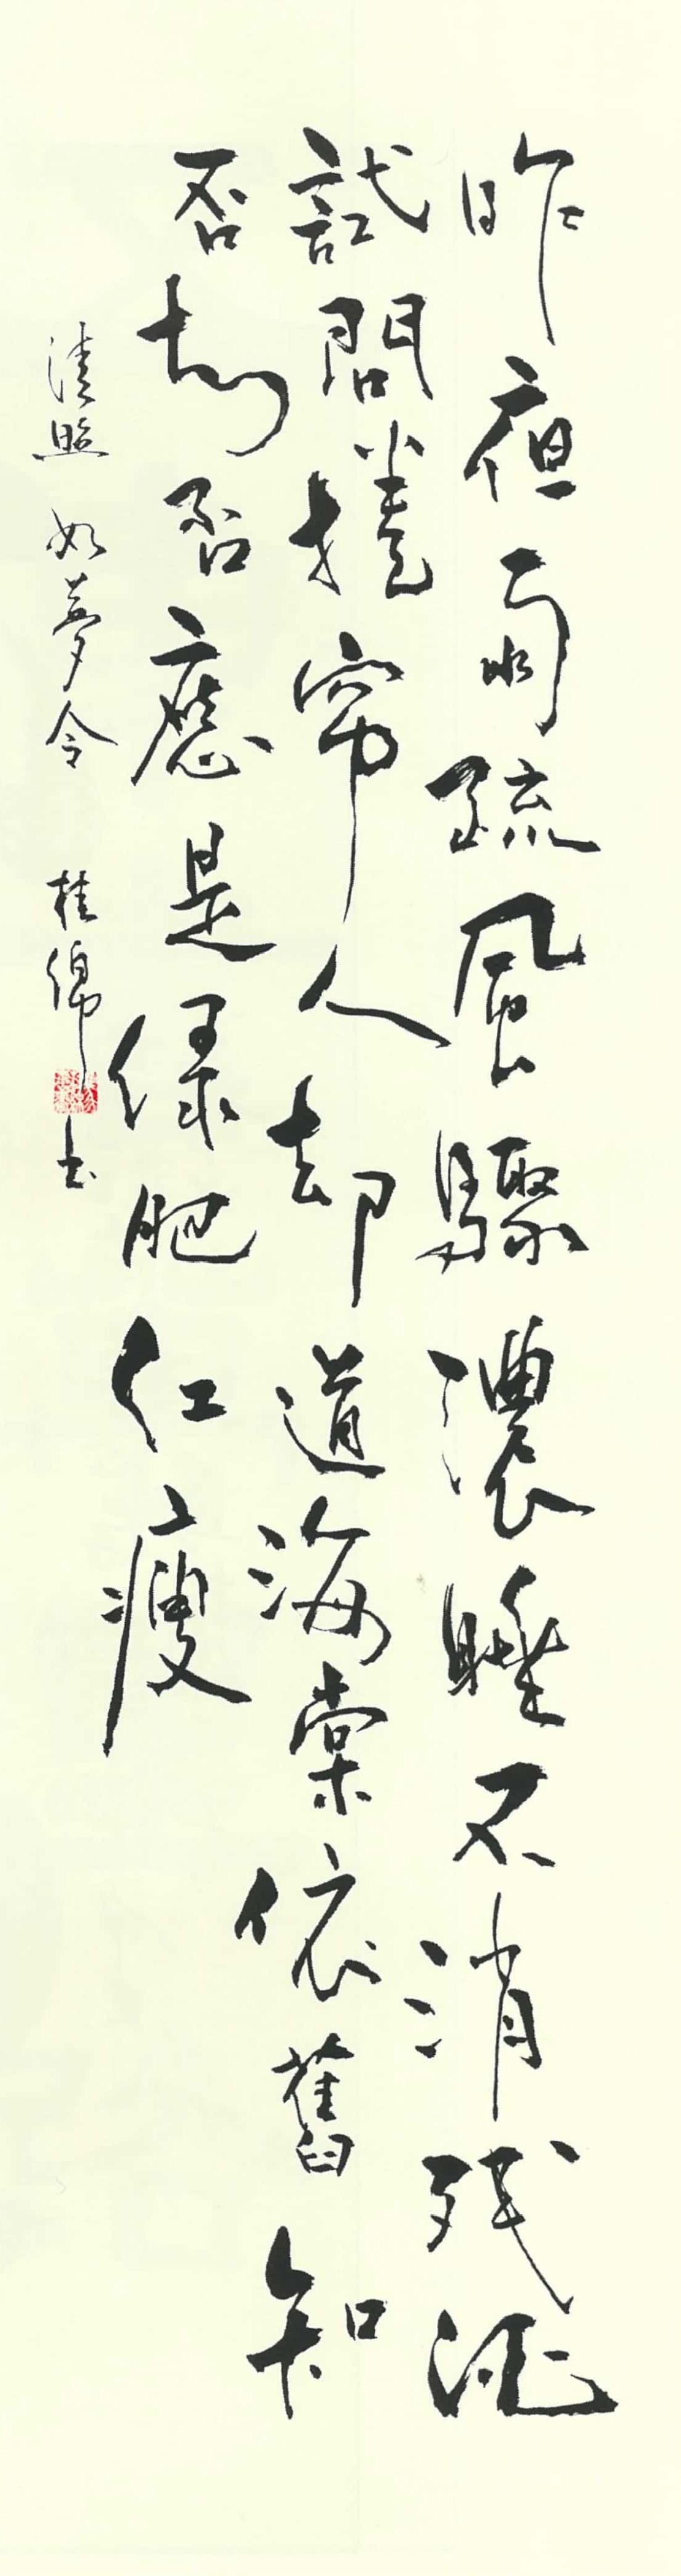 昨夜雨疏風驟濃睡不消残酒
試問捲帘人却道海棠依舊知
否知否應是绿肥红瘦
清照 如夢令 桂绵书